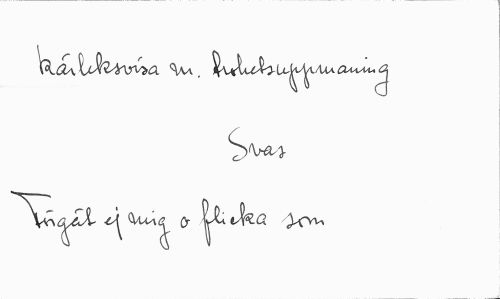 Kärleksvisa m. trohetsuppmaning
Svas
ej mig o flicka som